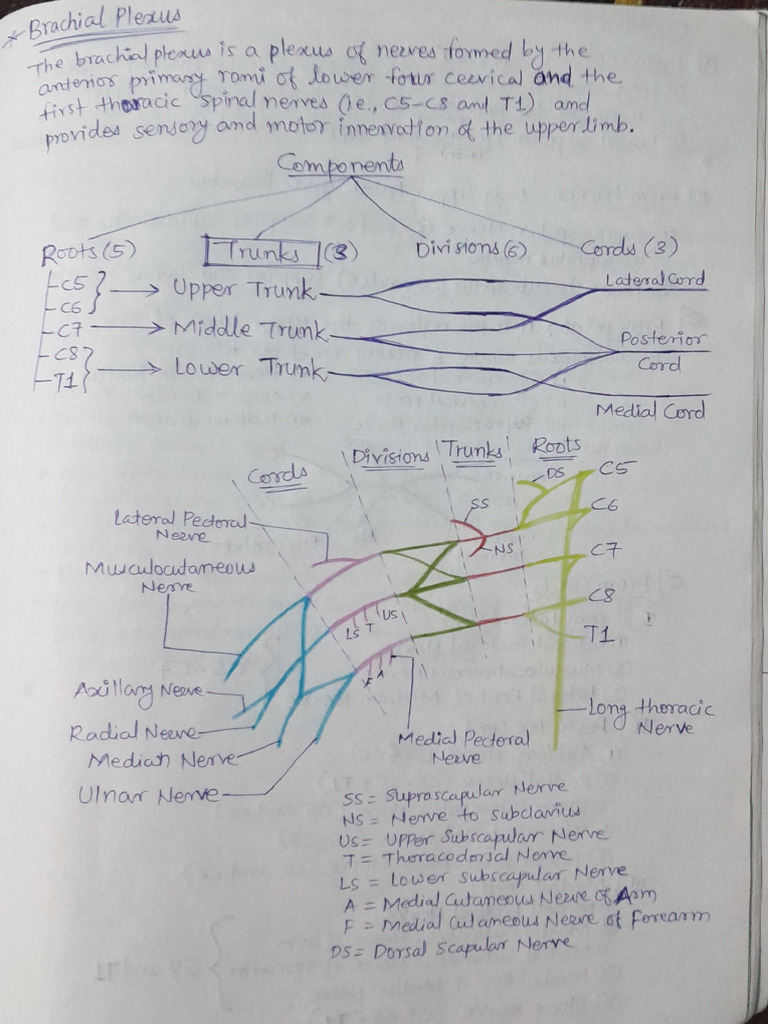 * Brachial Plexus
The brachial plexus is a plexus of nerves formed by the
anterior primary rami of lower four cervical and the
first thoracic spinal nerves (i.e., C5-C8 and T1) and
provides sensory and motor innervation of the upper limb.
Components
Roots (5) Trunks (3) Divisions (6) Cords (3)
C5
C6
C7
C8
T1
Upper Trunk
Middle Trunk
Lower Trunk
Lateral Cord
Posterior
Cord
Medial Cord
Cords Divisions Trunks Roots
DS
C5
C6
C7
C8
T1
SS
NS
Lateral Pectoral
Nerve
Musculocutaneous
Nerve
LS T US
F A
Axillary Nerve
Radial Nerve
Median Nerve
Ulnar Nerve
Medial Pectoral
Nerve
Long thoracic
Nerve
SS = Suprascapular Nerve
NS = Nerve to subclavius
US = Upper Subscapular Nerve
T = Thoracodorsal Nerve
LS = Lower subscapular Nerve
A = Medial Cutaneous Nerve of Arm
F = Medial Cutaneous Nerve of Forearm
DS = Dorsal Scapular Nerve